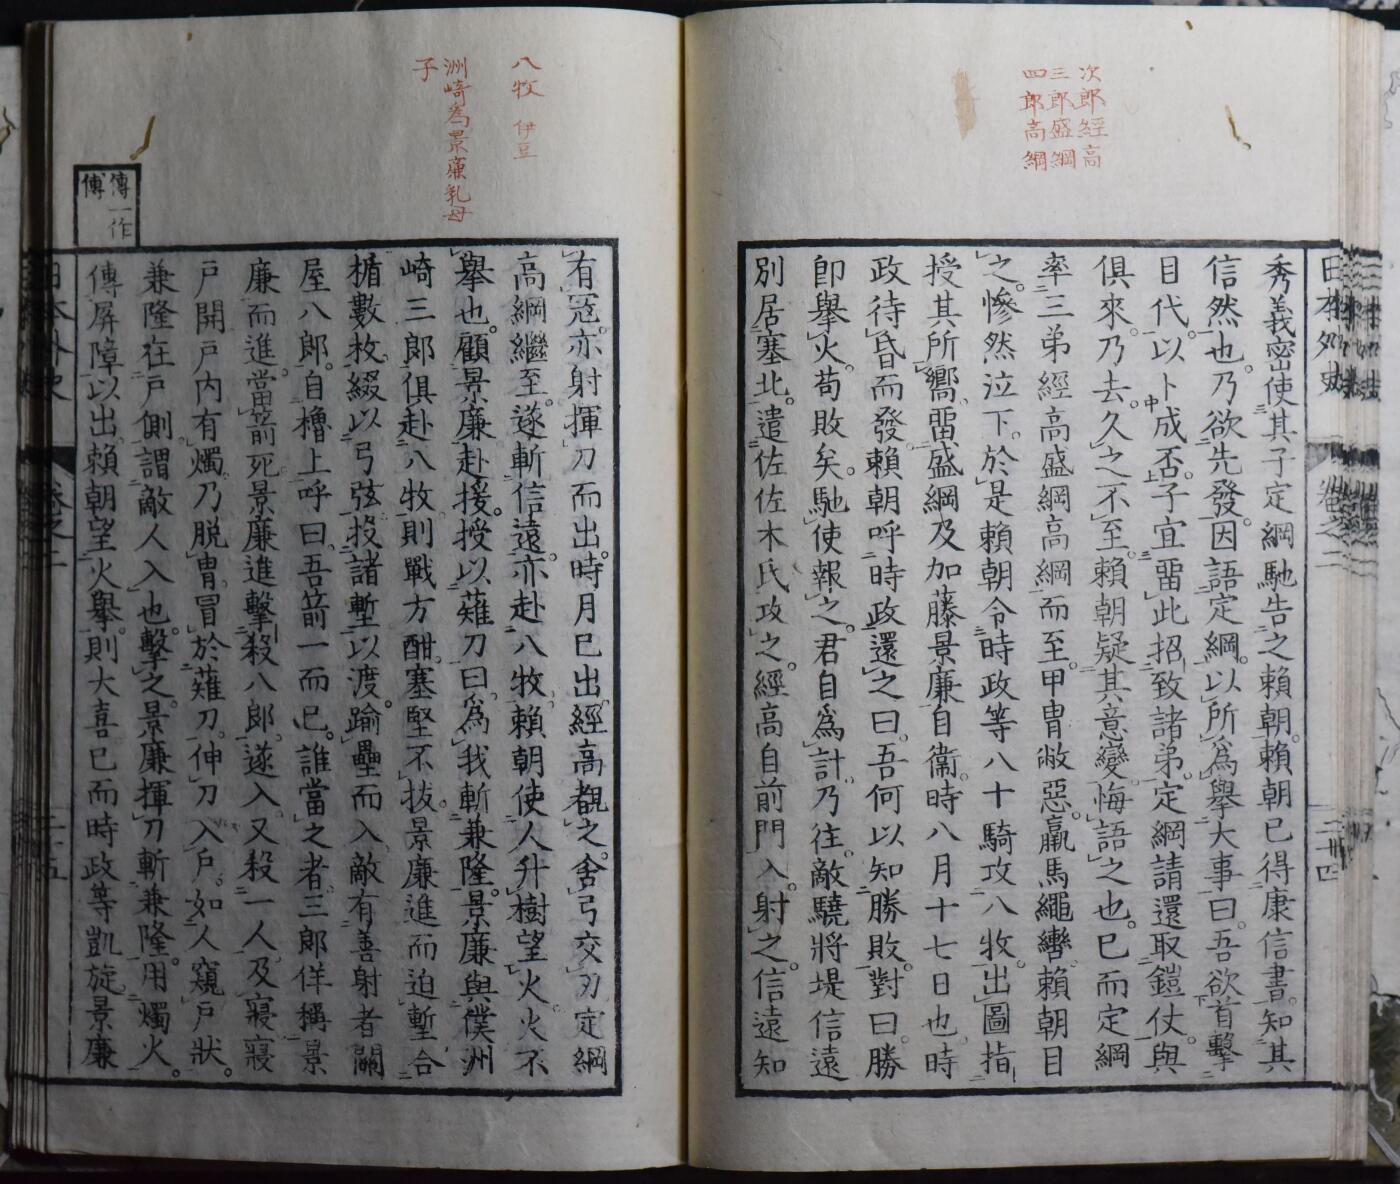 次郎經高
三郎盛綱
四郎高綱
日本外史
卷之二
二十四
秀義密使其子定綱馳告之賴朝賴朝已得康信書知其
信然也乃欲先發因語定綱以所爲擧大事曰吾欲首擊
目代以卜成否子宜畱此招致諸弟定綱請還取鎧仗與
俱來乃去久之不至賴朝疑其意變悔語之也已而定綱
率三弟經高盛綱高綱而至甲冑敝惡羸馬繩轡賴朝目
之慘然泣下於是賴朝令時政等八十騎攻八牧出圖指
授其所嚮畱盛綱及加藤景廉自衞時八月十七日也時
政待昏而發賴朝呼時政還之曰吾何以知勝敗對曰勝
卽擧火苟敗矣馳使報之君自爲計乃往敵驍將堤信遠
別居塞北遣佐佐木氏攻之經高自前門入射之信遠知
八牧 伊豆
洲崎爲景廉乳母
子
有寇亦射揮刀而出時月已出經高覩之舍弓交刃定綱
高綱繼至遂斬信遠亦赴八牧賴朝使人升樹望火火不
擧也顧景廉赴援授以薙刀曰爲我斬兼隆景廉與僕洲
崎三郎俱赴八牧則戰方酣塞堅不拔景廉進而迫塹合
楯數枚綴以弓弦投諸塹以渡踰壘而入敵有善射者關
屋八郎自櫓上呼曰吾箭一而已誰當之者三郎佯稱景
廉而進當箭死景廉進擊殺八郎遂入又殺一人及寢寢
戶開戶內有燭乃脫冑冒於薙刀伸刀入戶如人窺戶狀
兼隆在戶側謂敵人入也擊之景廉揮刀斬兼隆用燭火
傳屏障以出賴朝望火擧則大喜已而時政等凱旋景廉
傳一作
傅
日本外史
卷之二
二十五